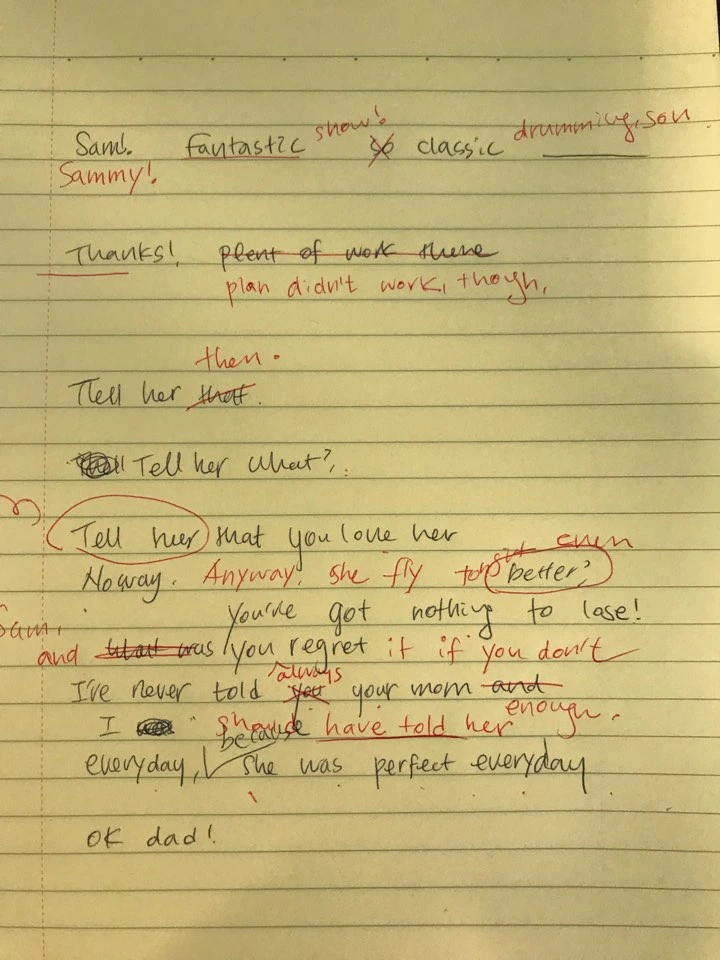 show! drumming, son
Sam!. fantastic so classic
Sammy!
Thanks!, plent of work there
plan didn't work, though,
then.
Tell her that.
Tell her what?,.
Tell her that you love her
even
No way. Anyway, she fly better?
you've got nothing to lose!
Sam,
and what was you regret it if you don't
always
I've never told you your mom and
enough.
I should have told her
because
everyday, she was perfect everyday
OK dad!